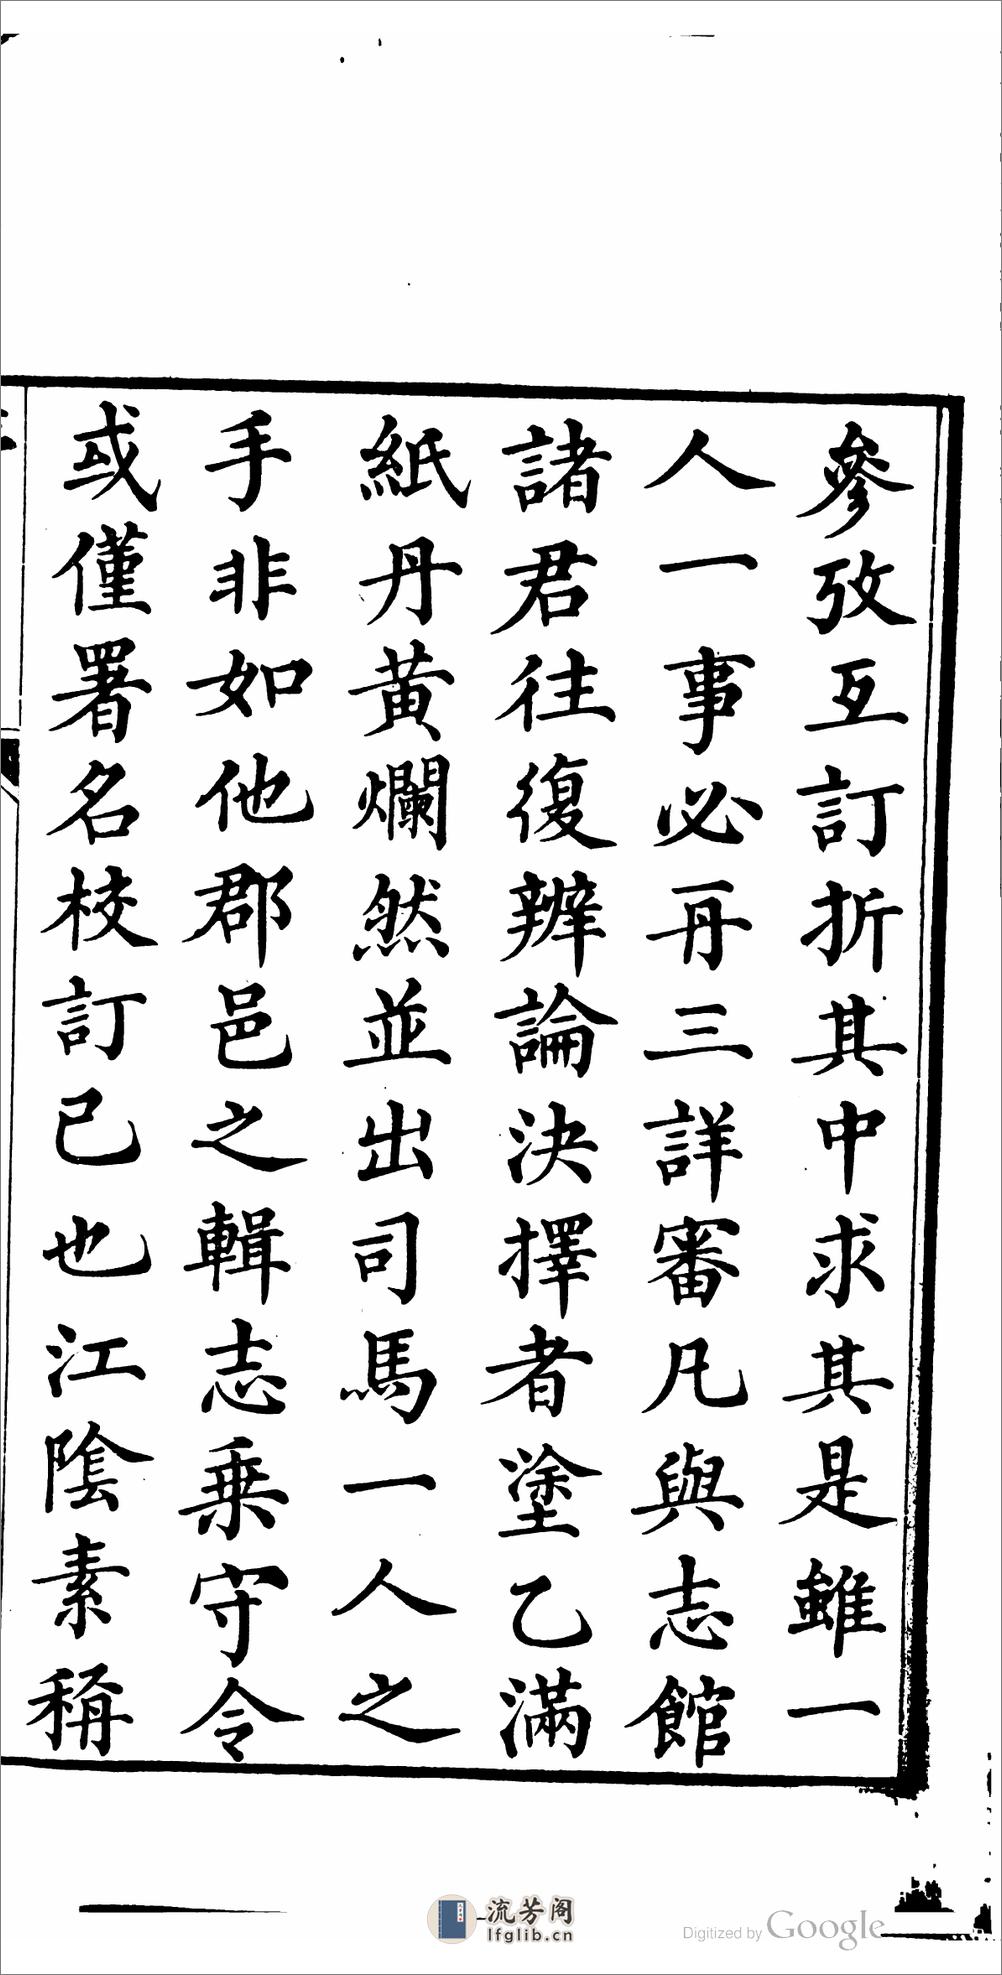 參攷互訂折其中求其是雖一
人一事必再三詳審凡與志館
諸君往復辨論決擇者塗乙滿
紙丹黄爛然並出司馬一人之
手非如他郡邑之輯志乗守令
或僅署名校訂已也江陰素稱
流芳阁
lfglib.cn
Digitized by Google